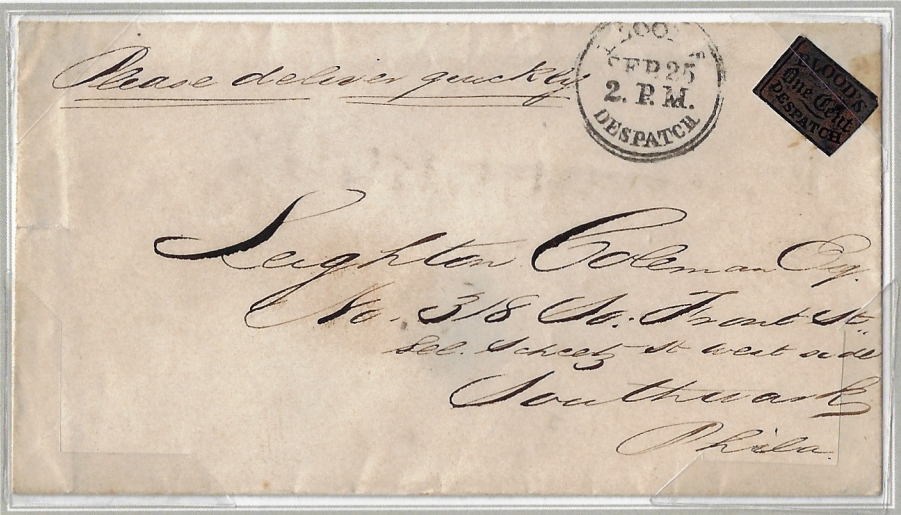 Please deliver quickly
BLOOD'S
SEP 25
2. P.M.
DESPATCH
BLOOD'S
One Cent
DESPATCH
Leighton Coleman Esq.
No. 318 So: Front St.
bel. Scheetz St west side
Southwark
Phila.